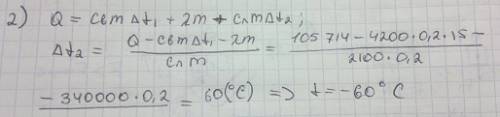 2) Q = cвm Δt₁ + λm + cлmΔt₂ ;
Δt₂ = (Q − cвm Δt₁ − λm) / (cл m) = (105 714 − 4200 · 0,2 · 15 −) / (2100 · 0,2)
− 340000 · 0,2 = 60 (°C) => t = −60° C